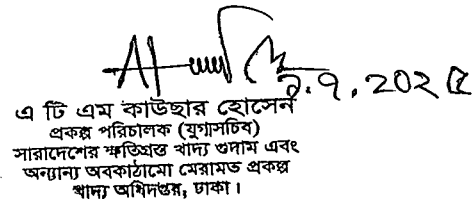 ৯.৭.২০২৫
এ টি এম কাউছার হোসেন
প্রকল্প পরিচালক (যুগ্মসচিব)
সারাদেশের ক্ষতিগ্রস্ত খাদ্য গুদাম এবং
অন্যান্য অবকাঠামো মেরামত প্রকল্প
খাদ্য অধিদপ্তর, ঢাকা।